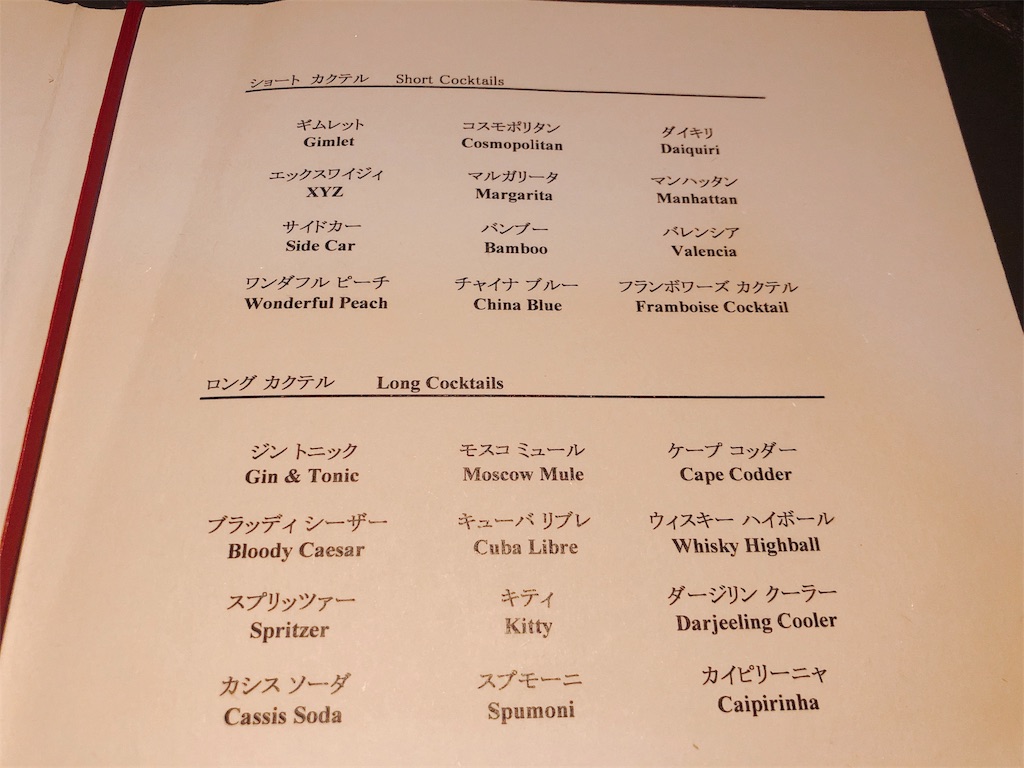 ショート カクテル Short Cocktails
ギムレット コスモポリタン ダイキリ
Gimlet Cosmopolitan Daiquiri
エックスワイジィ マルガリータ マンハッタン
XYZ Margarita Manhattan
サイドカー バンブー バレンシア
Side Car Bamboo Valencia
ワンダフル ピーチ チャイナ ブルー フランボワーズ カクテル
Wonderful Peach China Blue Framboise Cocktail
ロング カクテル Long Cocktails
ジン トニック モスコ ミュール ケープ コッダー
Gin & Tonic Moscow Mule Cape Codder
ブラッディ シーザー キューバ リブレ ウィスキー ハイボール
Bloody Caesar Cuba Libre Whisky Highball
スプリッツァー キティ ダージリン クーラー
Spritzer Kitty Darjeeling Cooler
カシス ソーダ スプモーニ カイピリーニャ
Cassis Soda Spumoni Caipirinha